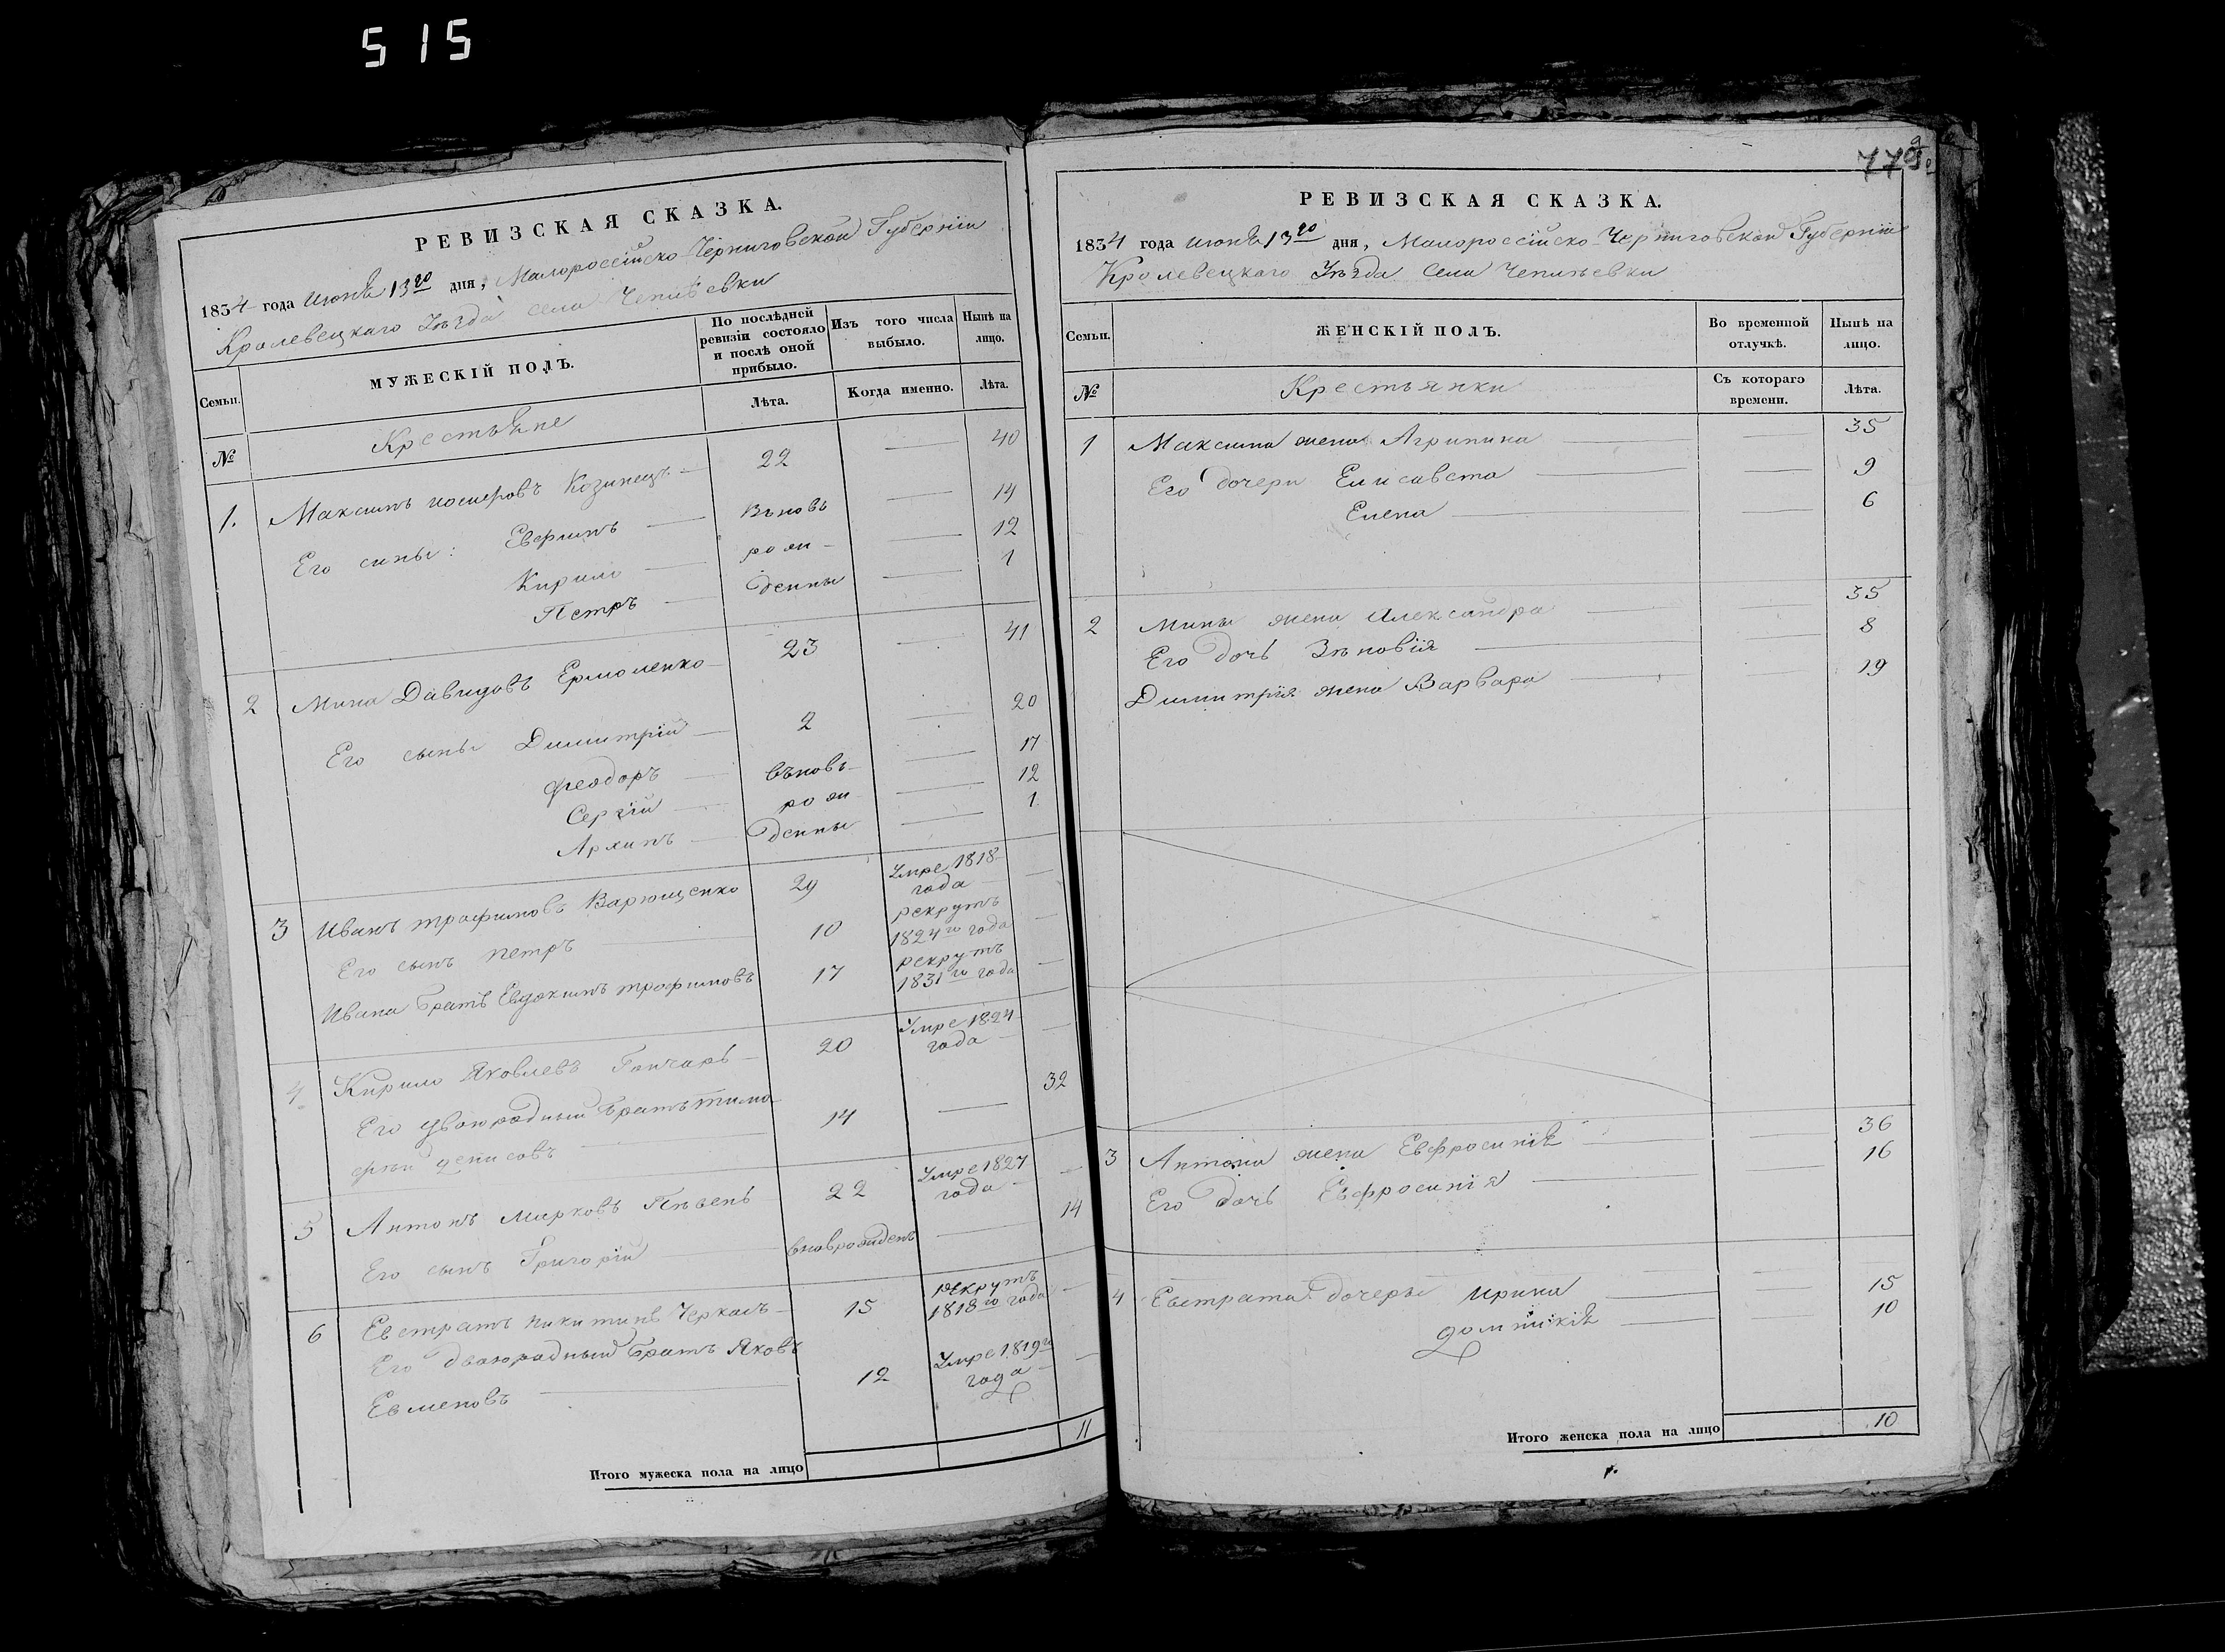 515
779
РЕВИЗСКАЯ СКАЗКА.
1834 года Июня 13го дня, Малороссійско-Черниговской Губерніи
Кролевецкаго Уѣзда села Чепліевки
Семьи.
МУЖЕСКІЙ ПОЛЪ.
По послѣдней ревизіи состояло и послѣ оной прибыло.
Изъ того числа выбыло.
Нынѣ на лицо.
№
Крестьяне
Лѣта.
Когда именно.
Лѣта.
1. Максимъ Козинецъ — 22 — 40
Его сины: Евфимъ — Вновь — 14
Кирило — рож- — 12
Петръ — денны — 1
2 Мина Давидовъ Ермоленко 23 — 41
Его сыны Димитрій — 2 — 20
Феодоръ — вновь — 17
Сергій — рож — 12
Архипъ — денны — 1
3 Иванъ Трофимовъ Варющенко 29 Умре 1818 года —
Его сынъ Петръ — 10 рекрутъ 1824го года —
Ивана братъ Евдокимъ Трофимовъ 17 рекрутъ 1831го года —
4 Кирило Яковлевъ Гончаръ — 20 Умре 1824 года —
Его двоюродный братъ Тимо-
фѣй Денисовъ — 14 — 32
5 Антонъ Марковъ Пѣвень 22 Умре 1827 года —
Его сынъ Григорій — вновьрожденъ — 14
6 Евстратъ Никитинъ 15 рекрутъ 1818го года —
Его двоюродный братъ Яковъ
Евменовъ — 12 Умре 1819го года —
Итого мужеска пола на лицо 11
РЕВИЗСКАЯ СКАЗКА.
1834 года Июня 13го дня, Малороссійско-Черниговской Губерніи
Кролевецкаго Уѣзда села Чепліевки
Семьи.
ЖЕНСКІЙ ПОЛЪ.
Во временной отлучкѣ.
Нынѣ на лицо.
№
Крестьянки
Съ котораго времени.
Лѣта.
1 Максима жена Агрипина — — 35
Его дочери Елисавета — — 9
Елена — — 6
2 Мины жена Александра — — 35
Его дочь Зѣновія — — 8
Димитрія жена Варвара — — 19
3 Антона жена Евфросинія — — 36
Его дочь Евфросинія — — 16
4 Евстрата дочеры Ирина — — 15
Домникія — — 10
Итого женска пола на лицо 10